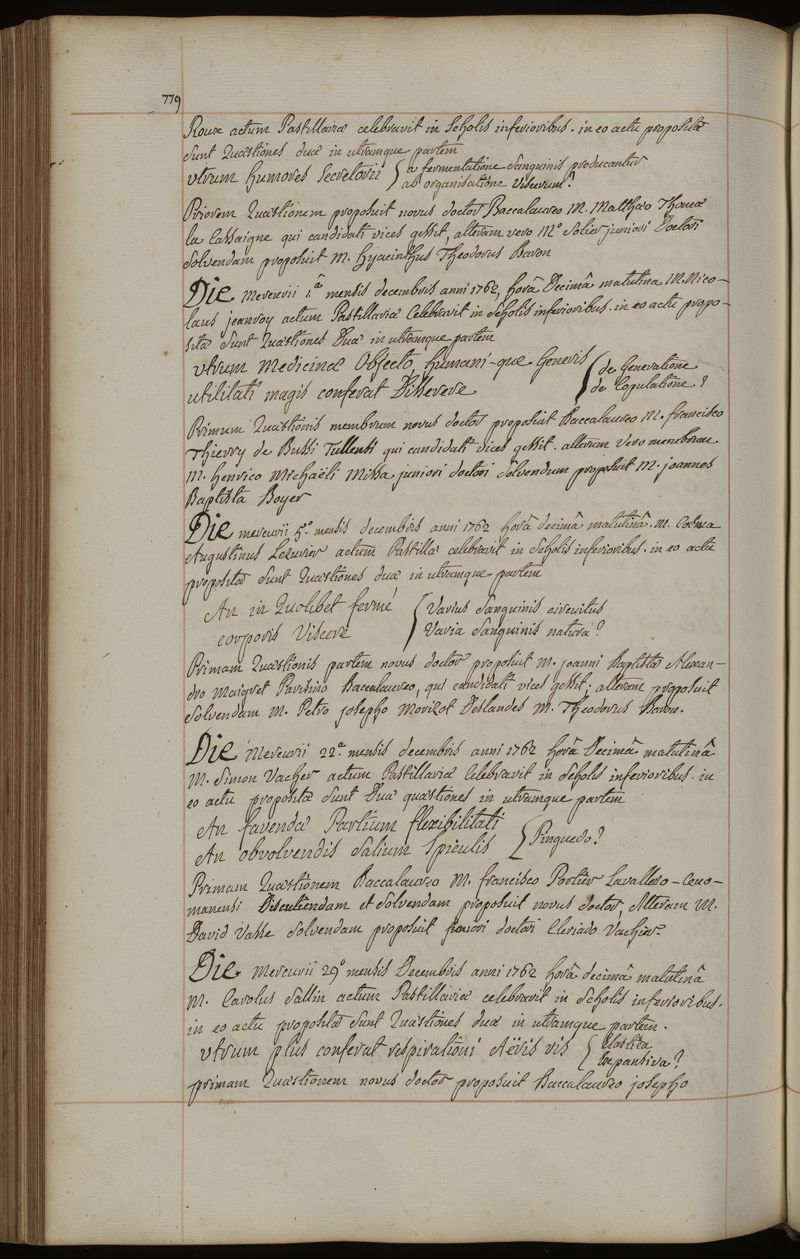 779
Roux actum Pastillariæ celebravit in Scholis inferioribus. in eo actu propositæ
sunt Quæstiones duæ in utramque partem
Utrum humores secretorii { a fermentatione sanguinis producantur
ab organisatione viscerum?
Priorem Quæstionem proposuit novus doctor Baccalaureo M. Matthæo Thoma
la Cassaigne qui candidati vices gessit, alteram vero M.º Solier juniori Doctori
solvendam proposuit M. Hyacinthus Theodorus Baron
Die Mercurii 1.ª mensis decembris anni 1762, horâ Decimâ matutina M. Nico-
laus jeanroy actum Pastillariæ Celebravit in Scholis inferioribus. in eo actu propo-
sitæ sunt Quæstiones Duæ in utramque partem
Utrum Medicinæ Objecto, humani-que Generis { de Generatione
utilitati magis conferat Disserere de Copulatione?
Primum Quæstionis membrum novus doctor proposuit Baccalaureo M. francisco
Thierry de Bussi Tullensi qui candidati vices gessit. alterum vero membrum
M. henrico Michaëli Missa juniori doctori solvendum proposuit M. joannes
Baptista Boyer
Die mercurii mensis decembris anni 1762 horâ decimâ matutinâ. M. Cosma
Augustinus Lezurier actum Pastillar celebravit in Scholis inferioribus. in eo actu
propositæ sunt Quæstiones duæ in utramque partem
An in Quolibet fermé { Varius sanguinis circuitus
corporis Viscere Varia sanguinis natura?
Primam Quæstionis partem novus doctor proposuit M. joanni Baptistæ Alexan-
dro Maigret Parisino Baccalaureo, qui candidati vices gessit; alteram proposuit
solvendam M. Petro josepho Morizot Deslandes M. Theodorus Baron.
Die Mercurii 22.ª mensis decembris anni 1762 horâ Decimâ matutinâ
M. Simon Vacher actum Pastillariæ Celebravit in Scholis inferioribus. in
eo actu propositæ sunt Duæ quæstiones in utramque partem
An favendæ Partium flexibilitati { Pinguedo?
An obvolvendis salium spiculis
Primam Quæstionem Baccalaureo M. francisco Portier Ceno-
manensi Discutiendam et solvendam proposuit novus doctor, Alteram M.
David Vasse solvendam proposuit doctori Cleriado Vachier.
Die Mercurii 29º mensis Decembris anni 1762 horâ decimâ matutinâ
M. Carolus Sallin actum Pastillariæ celebravit in Scholis inferioribus.
in eo actu propositæ sunt Quæstiones duæ in utramque partem.
Utrum plus conferat respirationi Aëris vis { Elastica
Expansiva?
primam Quæstionem novus doctor proposuit Baccalaureo josepho